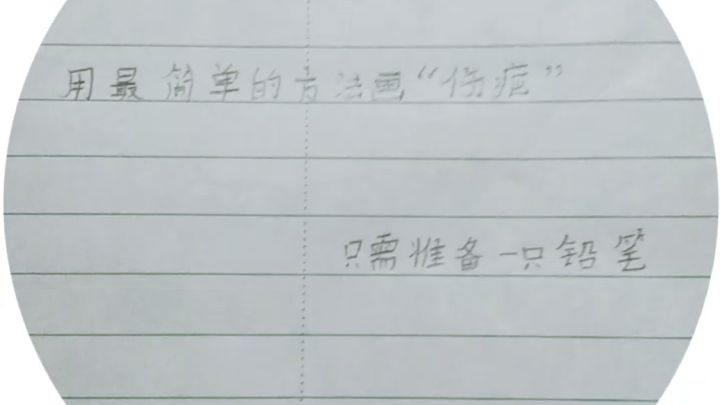 用最简单的方法画“伤疤”
只需准备一只铅笔